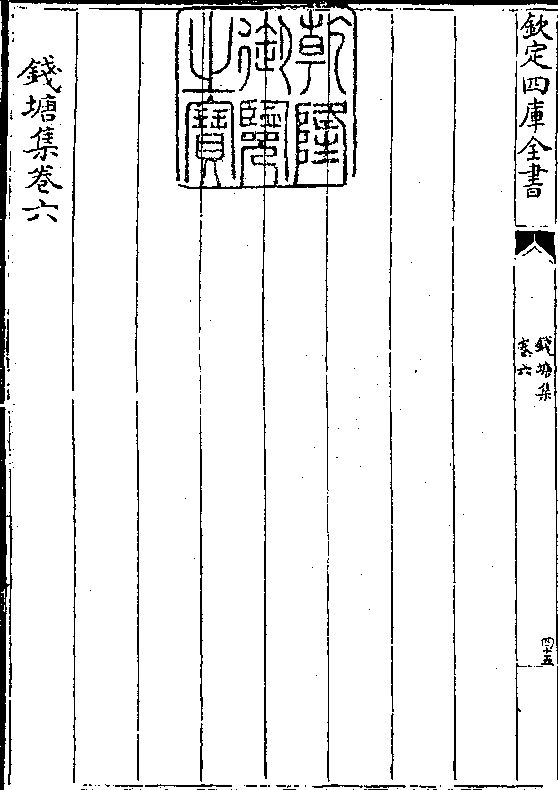 欽定四庫全書
錢塘集
卷六
四十五
乾隆
御覽
之寶
錢塘集卷六